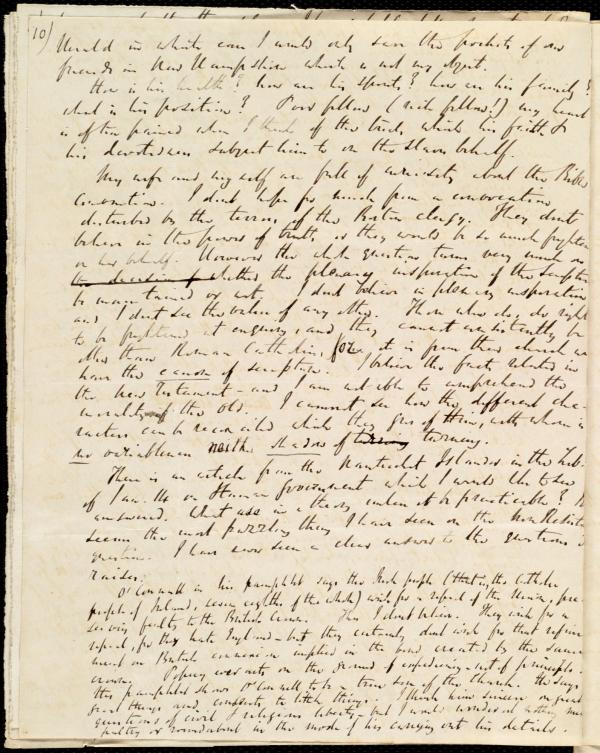 10)
Herald in which case I would only save the pockets of our
friends in New Hampshire which is not my object.
How is his health? how are his spirits? how are his family?
what is his position? Poor fellow (rich fellow!) my heart
is often pained when I think of the trials which his faith &
his devotedness subject him to on the slaves behalf.
My wife and myself are full of curiosity about the Bible
Convention. I dont hope for much from a convocation
disturbed by the terrors of the Boston clergy. They dont
believe in the power of truth, or they would be so much frighten
on its behalf. However the whole question turns very much on
the decision of whether the plenary inspiration of the Scripture
be maintained or not. I dont believe in plenary inspiration
and I dont see the value of any other. Those who do, do right
to be frightened at enquiry, and they cannot consistently be
other than Roman Catholics, for it is from their church we
have the canon of scripture. I believe the facts related in
the New Testament - and I am not able to comprehend the
morality of the Old. I cannot see how the different cha-
racters can be reconciled which they give of Him, with whom is
no variableness neither shadow of turning.
There is an article from the Nantucket Islander in the Lib.
of Jan. on Human Government which I would like to see
answered. What use in a theory unless it be practicable? It
seems the most puzzling thing I have seen on the Non Resistance
question. I have never seen a clear answer to the questions it
raises.
O'Connell in his pamphlet says the Irish people (that is, the Catholic
people of Ireland, seven eighths of the whole) wish for a repeal of the Union, pre-
serving fealty to the British Crown. This I dont believe. They wish for a
repeal, for they hate England - but they certainly dont wish for that
ment on British connexion implied in the bond created by the same
crown. Popery wars not on the ground of expediency - not of principle.
This pamphlet shows O'Connell to be a true son of the Church. He says
great things and connects to little things. I think him sincere on great
questions of civil & religious liberty - but I would wonder at nothing
paltry or roundabout in the mode of his carrying out his details.